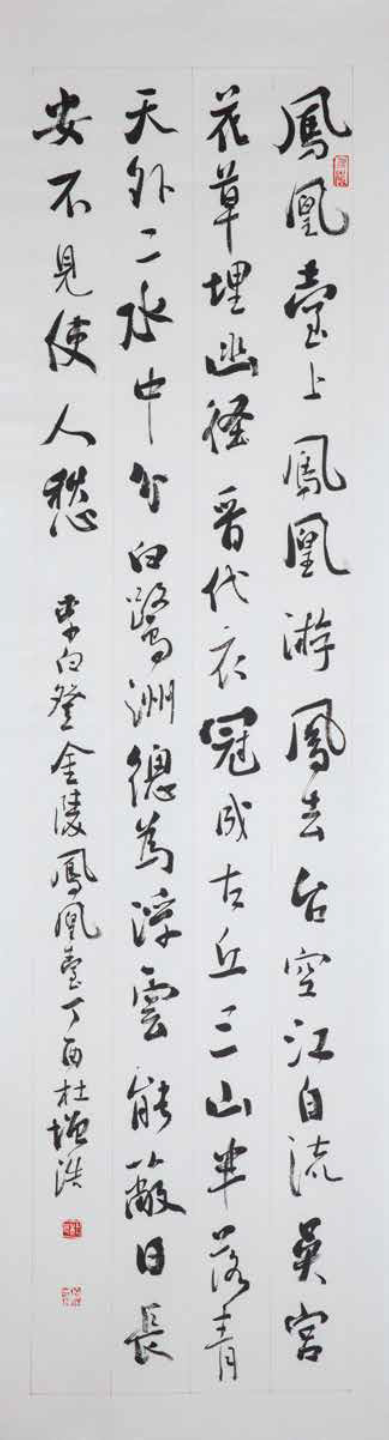 鳳凰臺上鳳凰游鳳去台空江自流吳宮
花草埋幽径晋代衣冠成古丘三山半落青
天外二水中分白鷺洲總為浮雲能蔽日長
安不見使人愁
李白登金陵鳳凰臺丁酉杜增浩